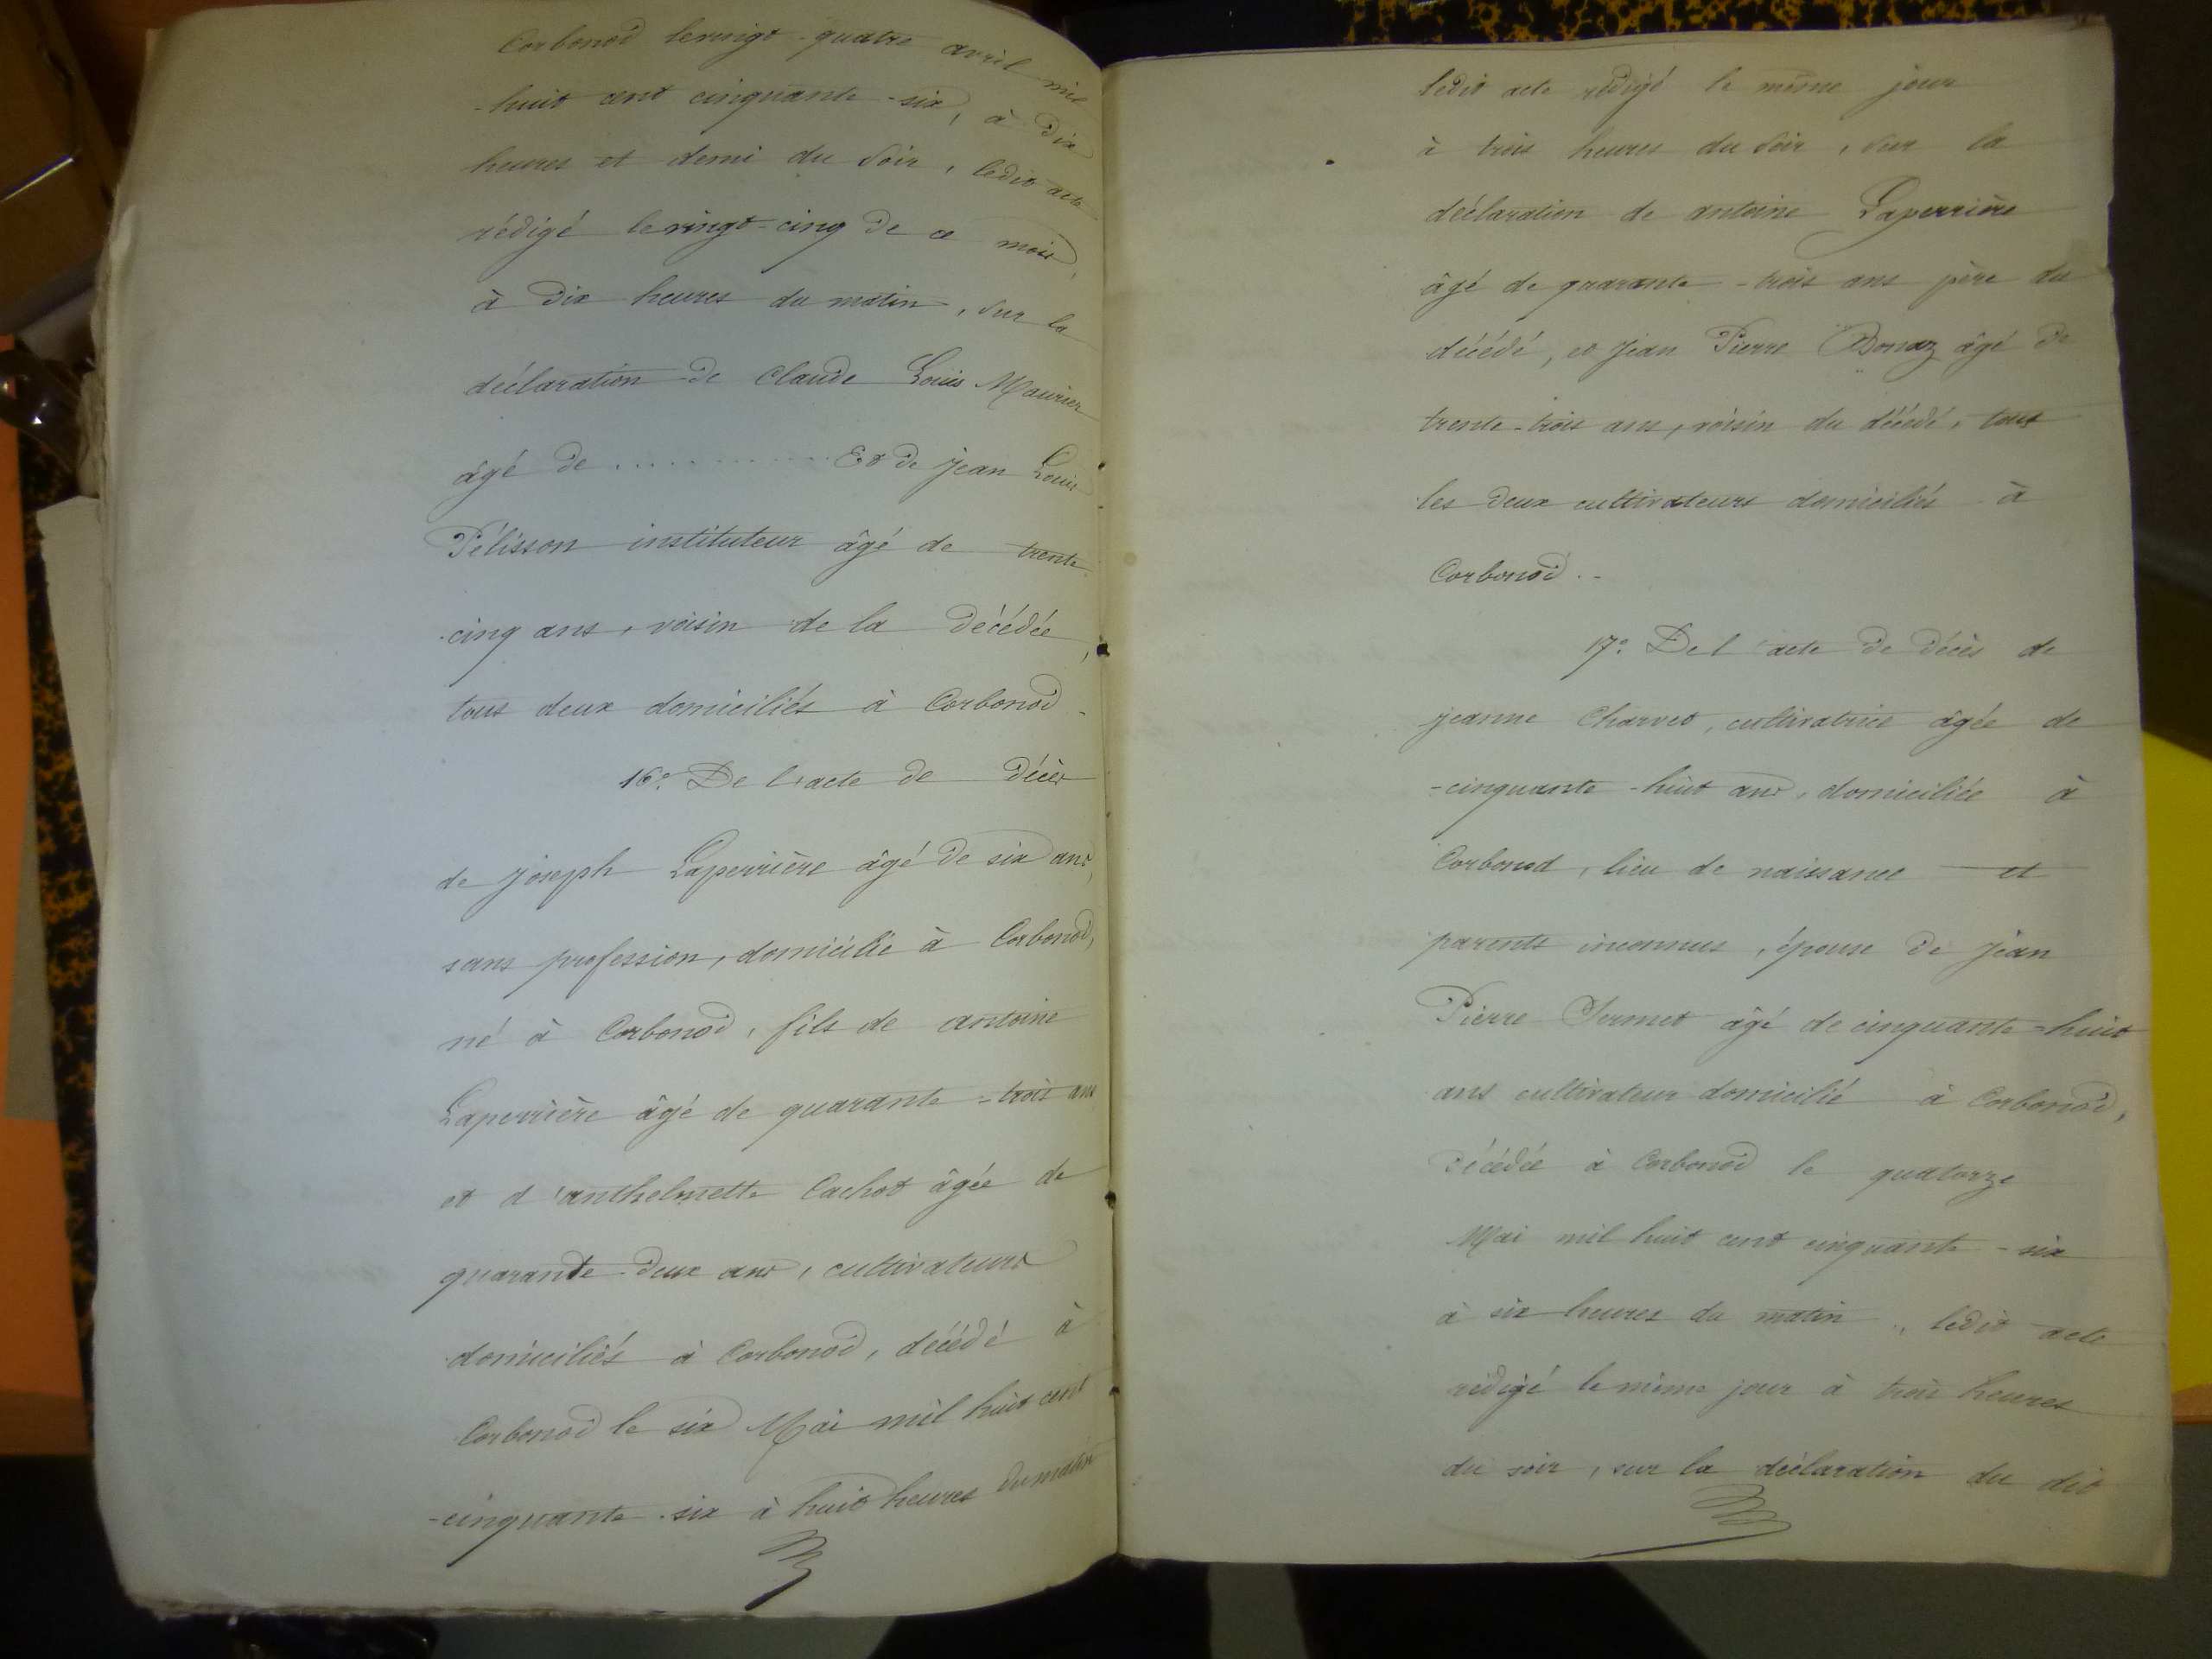 Corbonod le vingt-quatre avril mil
-huit cent cinquante-six, à dix
heures et demi du soir, ledit acte
rédigé le vingt-cinq de ce mois,
à dix heures du matin, sur la
déclaration de Claude Louis Maurier
âgé de ............ Et de Jean Louis
Pélisson instituteur âgé de trente
-cinq ans, voisin de la décédée,
tous deux domiciliés à Corbonod -
16°. De l'acte de décès
de Joseph Laperrière âgé de six ans,
sans profession, domicilié à Corbonod,
né à Corbonod, fils de antoine
Laperrière âgé de quarante-trois ans
et d'anthelmette Cachot âgée de
quarante-deux ans, cultivateurs
domiciliés à Corbonod, décédé à
Corbonod le six Mai mil huit cent
-cinquante-six à huit heures du matin
ledit acte rédigé le même jour
à trois heures du soir, sur la
déclaration de antoine Laperrière
âgé de quarante-trois ans père du
décédé, et Jean Pierre Bonaz âgé de
trente-trois ans, voisin du décédé, tous
les deux cultivateurs domiciliés à
Corbonod.-
17°. De l'acte de décès de
jeanne Charvet, cultivatrice âgée de
-cinquante-huit ans, domiciliée à
Corbonod, lieu de naissance et
parents inconnus, épouse de Jean
Pierre Sermet âgé de cinquante-huit
ans cultivateur domicilié à Corbonod,
décédée à Corbonod le quatorze
Mai mil huit cent cinquante-six
à six heures du matin, ledit acte
rédigé le même jour à trois heures
du soir, sur la déclaration du dit